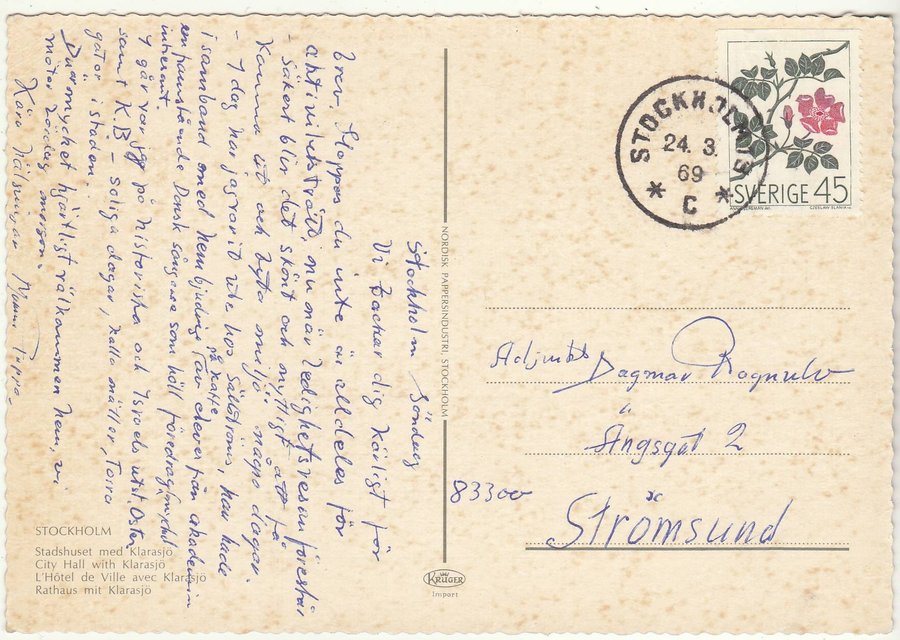 Stockholm Söndag
Vi Tackar dig Käligt för
brev. Hoppas du inte är alldeles för
aktivitetstrött, nu när ledighetsresan förestår
- säkert blir det skönt och nyttigt att få
Komma ut och byta miljö några dagar.
- I dag har jag varit ute hos på kaffe, han hade
i samband med hembjudit elever från akademin
en framstående Dansk sångare som höll föredrag, mycket
intressant.
I går var jag på historiska och Israels utst. Öster,
samt K.B - soliga dagar, kalla nätter, Torra
gator i staden
Du är mycket hjärtligt välkommen hem, vi
möter lördag morgon.
Kära hälsningar
STOCKHOLM
Stadshuset med Klarasjö
City Hall with Klarasjö
L'Hôtel de Ville avec Klarasjö
Rathaus mit Klarasjö
NORDISK PAPPERSINDUSTRI, STOCKHOLM
KRÜGER
Import
STOCKHOLM
24. 3.
69
* C *
SVERIGE 45
CZESLAW SLANIA
Adjunkt Dagmar
Ängsgat 2
83300
Strömsund